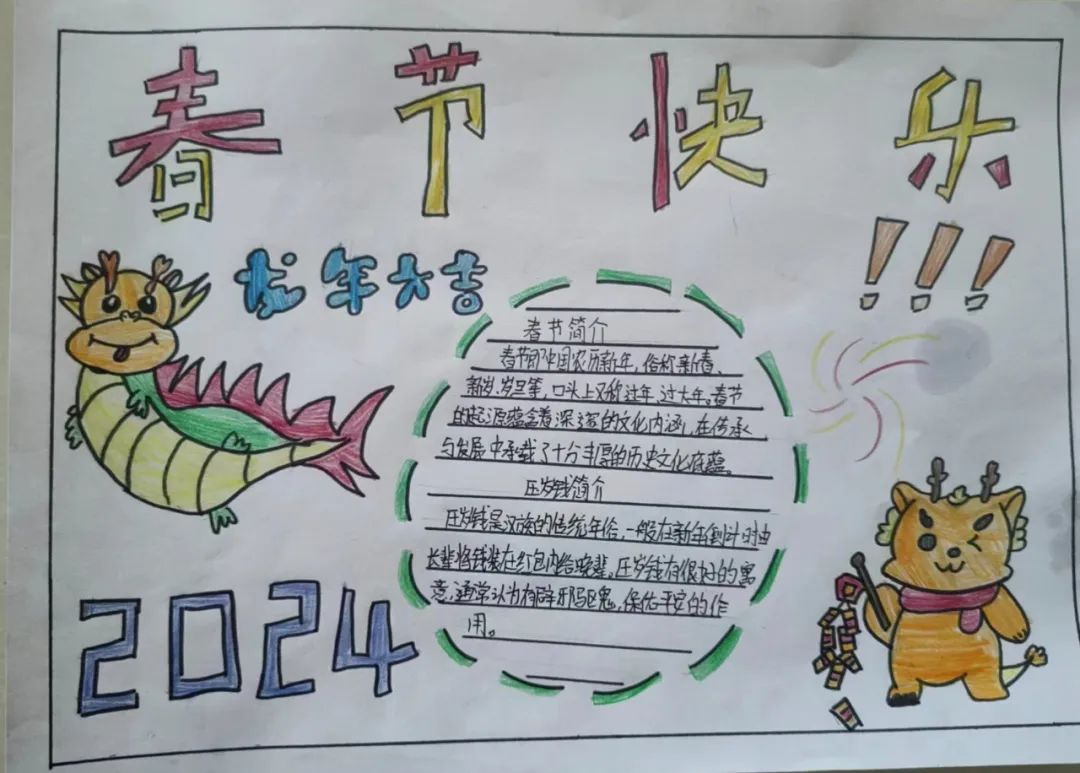 春节快乐
!!!
龙年大吉
春节简介
春节即中国农历新年,俗称新春、
新岁、岁旦等,口头上又称过年、过大年。春节
的起源蕴含着深邃的文化内涵,在传承
与发展中承载了十分丰厚的历史文化底蕴。
压岁钱简介
压岁钱是汉族的传统年俗,一般在新年倒计时由
长辈将钱装在红包内给晚辈。压岁钱有很好的寓
意,通常认为有辟邪驱鬼,保佑平安的作
用。
2024